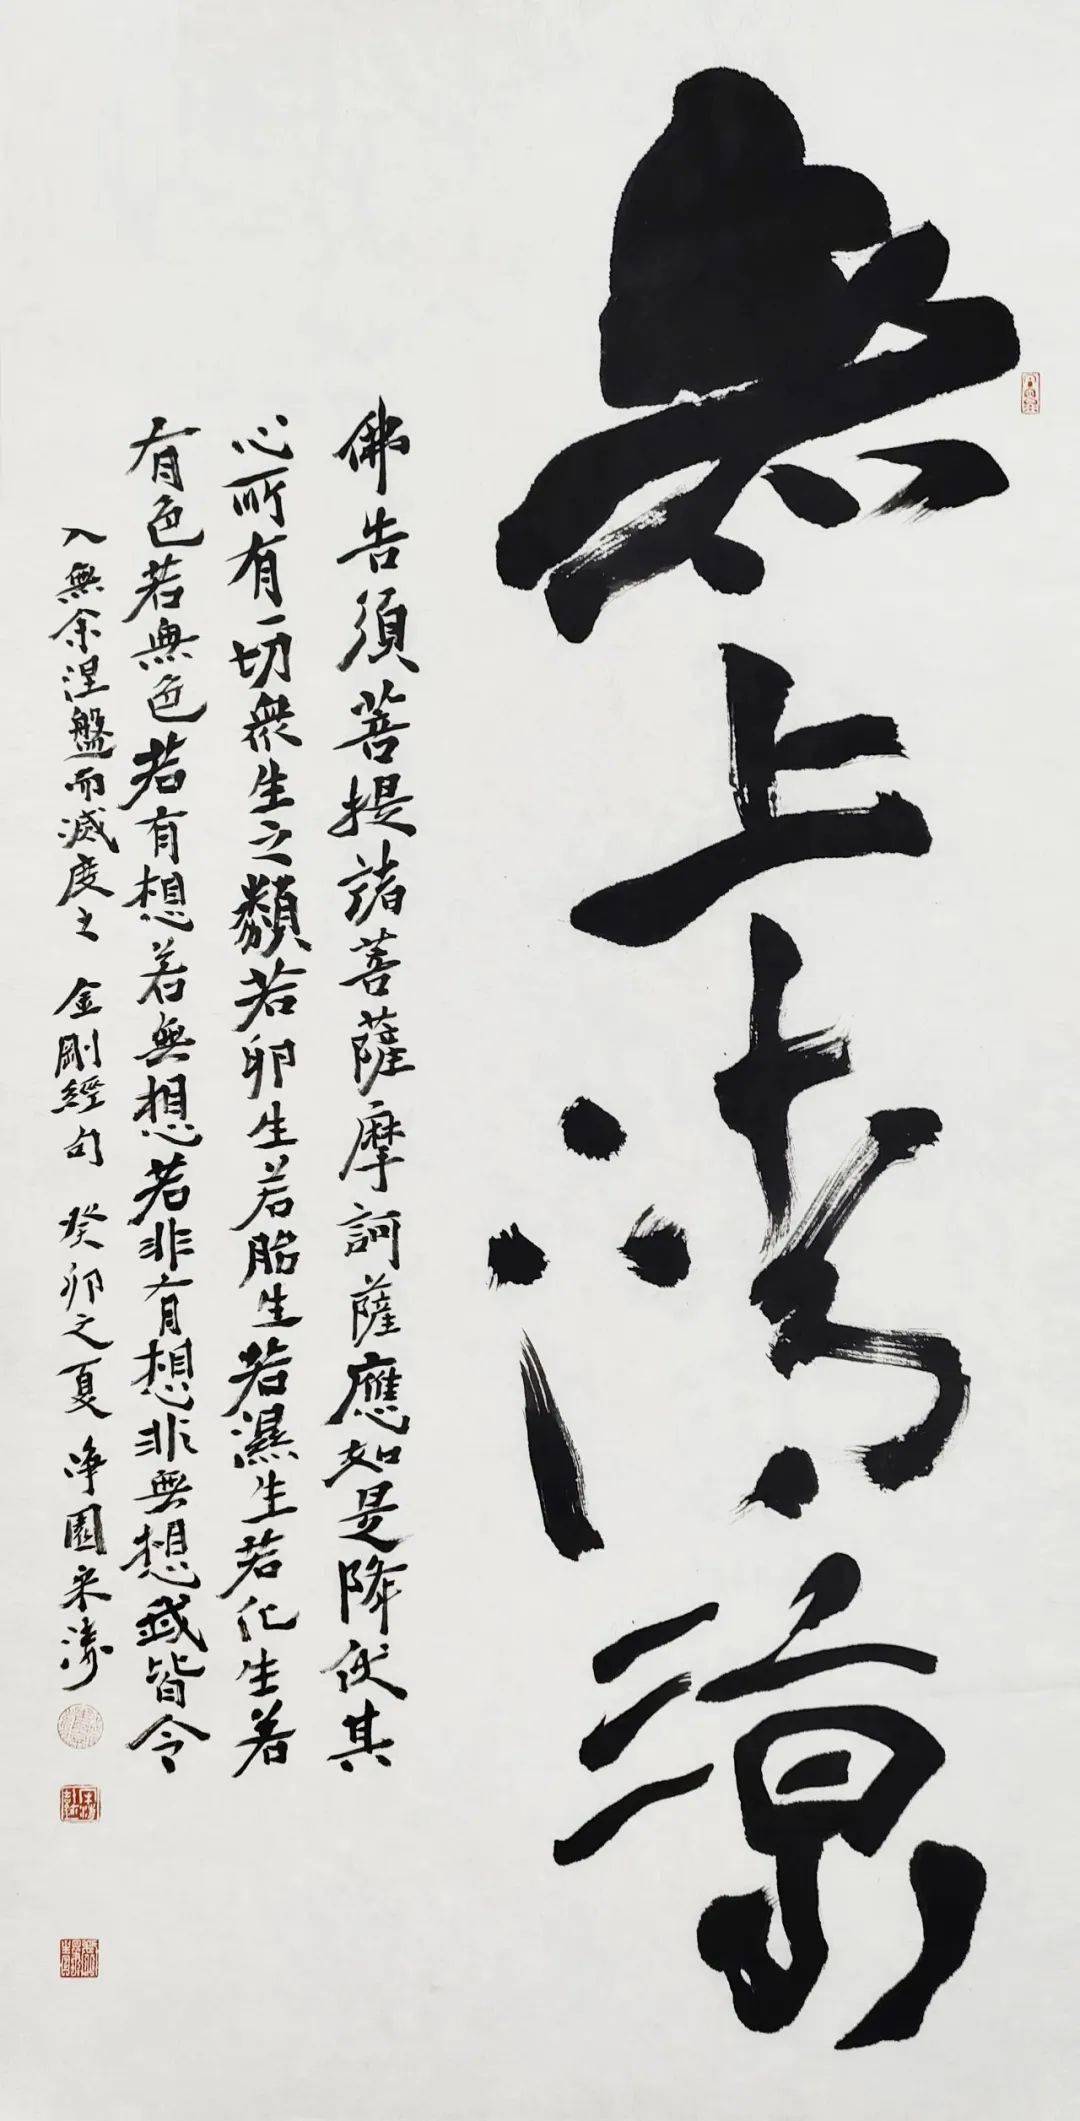 無上清涼
佛告須菩提諸菩薩摩訶薩應如是降伏其
心所有一切衆生之類若卵生若胎生若濕生若化生若
有色若無色若有想若無想若非有想非無想我皆令
入無余涅盤而滅度之 金剛經句 癸卯之夏 净園来濤